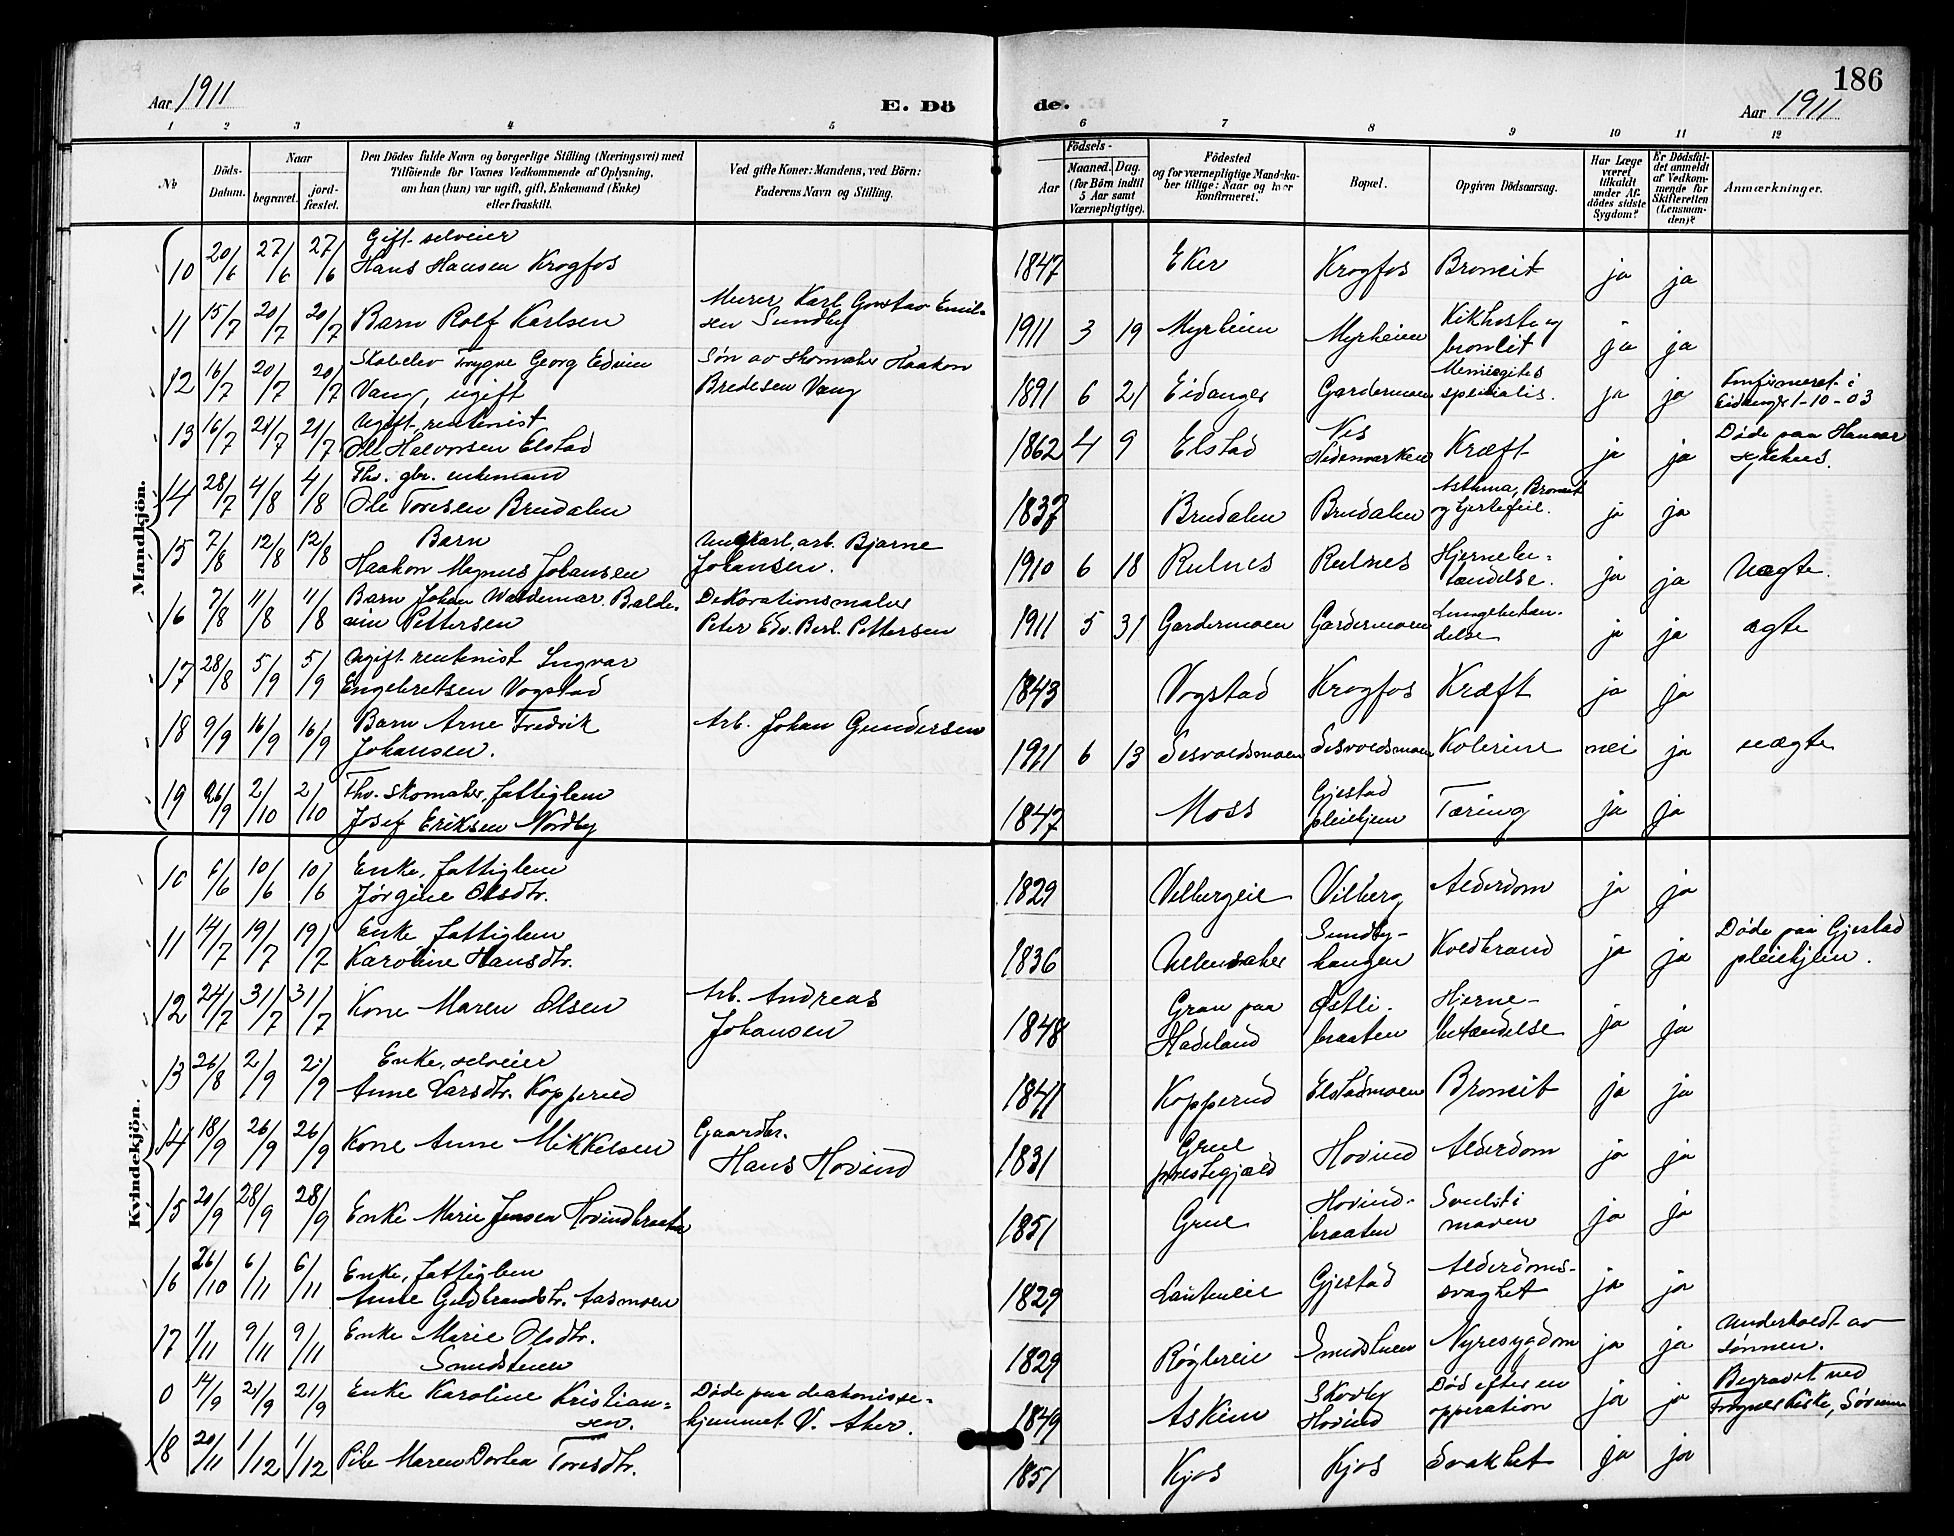 Aar 1911
E. Dö
de.
Aar 1911
186
1 2 3 4 5 6 7 8 9 10 11 12
No
Döds-Datum.
Naar
begravet.
jord-fæstet.
Den Dödes fulde Navn og borgerlige Stilling (Næringsvei) med
Tilföiende for Voxnes Vedkommende af Oplysning,
om han (hun) var ugift, gift, Enkemand (Enke)
eller fraskilt.
Ved gifte Koner: Mandens, ved Börn:
Faderens Navn og Stilling.
Födsels-
Aar
Maaned. Dag.
(for Börn indtil
5 Aar samt
Værnepligtige).
Födested
og for værnepligtige Mandska-
ber tillige: Naar og hvor
konfirmeret.
Bopæl.
Opgiven Dödsaarsag.
Har Læge
været
tilkaldt
under Af-
dödes sidste
Sygdom?
Er Dödsfal-
det anmeldt
af Vedkom-
mende for
Skifteretten
(Lensman-
den)?
Anmærkninger.
Mandkjön.
10 20/6 27/6 27/6 Gift selveier
Hans Hansen Krogfos 1847 Eker Krogfos Bronkit ja ja
11 15/7 20/7 20/7 Barn Rolf Karlsen Murer Karl Gustav Emil-
sen Sundby 1911 3 19 Myrheim Myrheim Kikhoste og
bronkit ja ja
12 16/7 20/7 20/7 Skoleelev Trygve Georg Edvin
Vang, ugift Søn av skomaker Haakon
Bredesen Vang 1891 6 21 Eidanger Gardermoen ja ja
Eidanger 1-10-03
13 16/7 21/7 21/7 Ugift, rentenist
Ole Halvorsen Elstad 1862 4 9 Elstad Nes
Hedemarken Kræft ja ja Døde paa Hamar
sykehus.
14 28/7 4/8 4/8 Fhv. gbr. enkemand
Ole Toresen Brudalen 1837 Brudalen Brudalen Asthma, Bronkit
og hjertefeil. ja ja
15 7/8 12/8 12/8 Barn
Haakon Magnus Johansen Ungkarl, arb. Bjarne
Johansen. 1910 6 18 Rulnes Rulnes Hjernebe-
tændelse. ja ja Uægte.
16 7/8 11/8 11/8 Barn Johan Waldemar Balde-
vin Pettersen Dekorationsmaler
Peter Edv. Berl. Pettersen 1911 5 31 Gardermoen Gardermoen Lungebetæn-
delse ja ja ægte
17 28/8 5/9 5/9 Ugift rentenist Ingvar
Engebretsen Vogstad 1843 Vogstad Krogfos Kræft ja ja
18 9/9 16/9 16/9 Barn Arne Fredrik
Johansen. Arb. Johan Gundersen 1911 6 13 Sesvoldsmoen Sesvoldsmoen Kolerine nei ja uægte
19 26/9 2/10 2/10 Fhv. skomaker, fattiglem
Josef Eriksen Nordby 1847 Moss Gjestad
pleiehjem Tæring ja ja
Kvindekjön.
10 6/6 10/6 10/6 Enke, fattiglem
Jørgine Olsdtr. 1829 Vilbergeie Vilberg Alderdom ja ja
11 14/7 19/7 19/7 Enke fattiglem
Karoline Hansdtr. 1836 Ullensaker Sundby-
haugen Koldbrand ja ja Døde paa Gjestad
pleiehjem.
12 24/7 31/7 31/7 Kone Maren Olsen Arb. Andreas
Johansen 1848 Gran paa
Hadeland Østli-
braaten Hjerne-
betændelse ja ja
13 26/8 2/9 2/9 Enke, selveier
Anne Larsdtr. Kopperud 1841 Kopperud Elstadmoen Bronkit ja ja
14 18/9 26/9 26/9 Kone Anne Mikkelsen Gaardbr.
Hans Hovind 1831 Grue
prestegjæld Hovind Alderdom ja ja
15 20/9 28/9 28/9 Enke Marie Jensen Hovindbraaten 1851 Grue Hovind-
braaten Svulst i
maven ja ja
16 26/10 6/11 6/11 Enke, fattiglem
Anne Guldbrandsdtr. Aasmoen 1829 Gjestad Alderdoms-
svaghet ja ja
17 1/11 9/11 9/11 Enke Marie Olsdtr.
Smedstuen 1829 Røglereie Smedstuen Nyresygdom ja ja Underholdt av
sønnen.
0 14/9 21/9 21/9 Enke Karoline Kristian-
sen. Døde paa diakonisse-
hjemmet V. Aker. 1849 Askim Skovby
Hovind Død efter en
opperation ja ja Begravet ved
Frogner kirke, Sørum
18 20/11 1/12 1/12 Pike Maren Dorthea Toresdtr. 1851 Kjos Kjos Svakhet ja ja